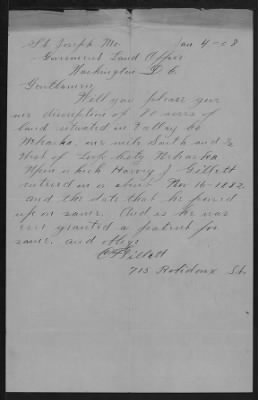 St Joseph Mo. Jan 4-08
Government Land Office
Washington D C.
Gentlemen
Will you please give
me discription of 80 acres of
land situated in Valley Co
Nebraska, one mile South and ½
West of Loup City Nebraska
Upon which Harvey J Gillett
entered on or about Nov 16-1882.
and the date that he proved
up on same. And as he was
ever granted a patent for
same. and oblige
Gillett
713 Robidoux St.